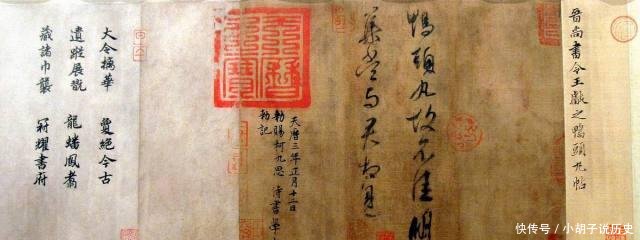 晉尚書令王獻之鴨頭丸帖
鴨頭丸故不佳明
集當与君相見
天曆三年正月十二日
勅賜柯九思 侍書學
勅記
大令摛華 夐絕今古
遺蹤展翫 龍蟠鳳翥
藏諸巾襲 冠耀書府
快传号 / 小胡子说历史